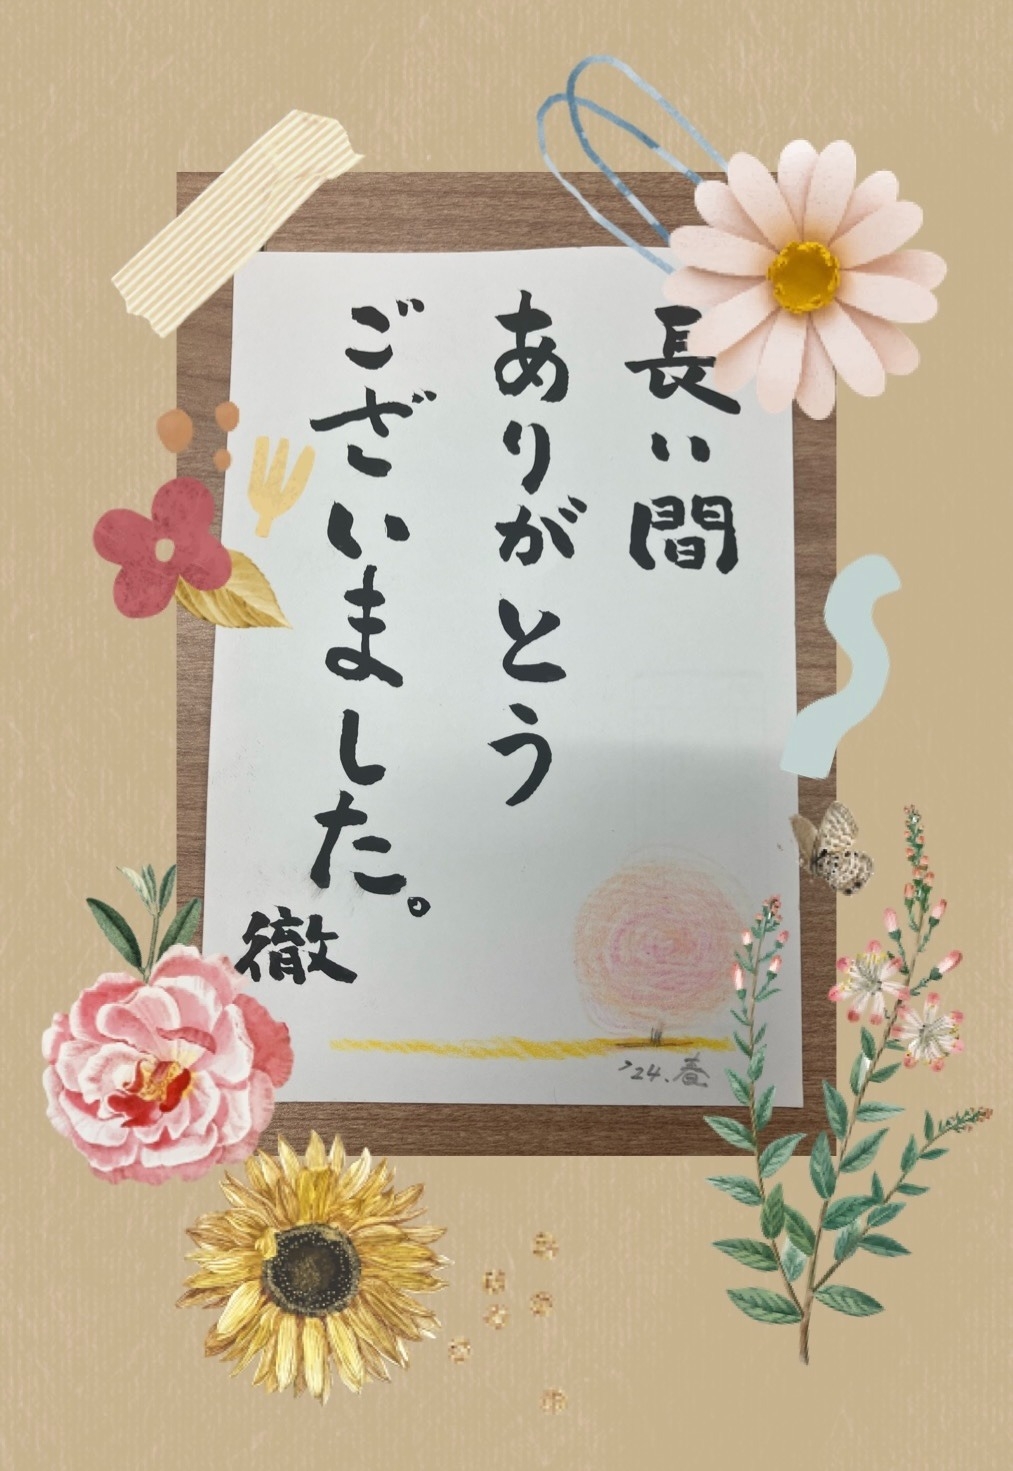 長い間
ありがとう
ございました。
徹
'24.春